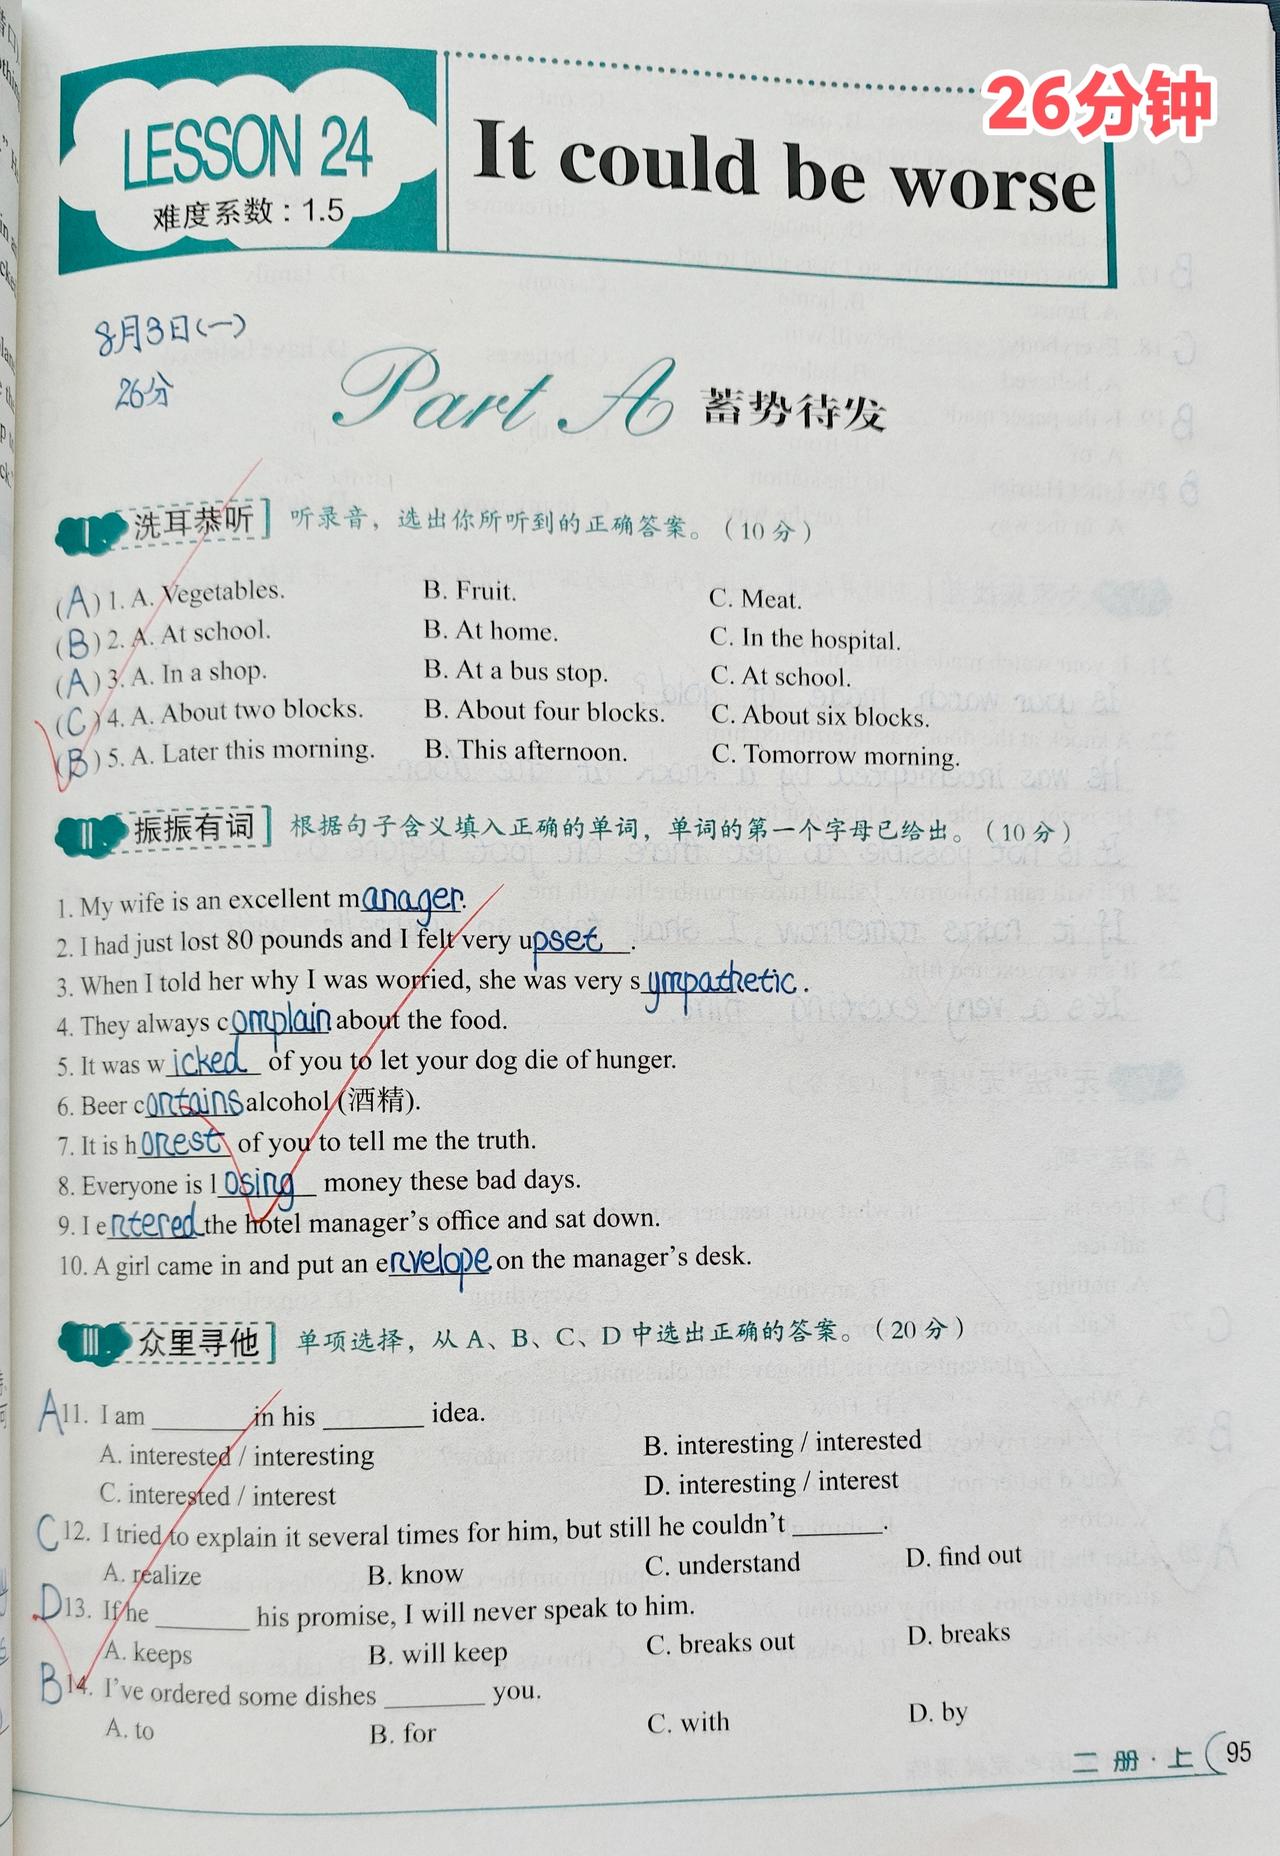 26分钟
LESSON 24
难度系数：1.5
It could be worse
8月3日(一)
26分
Part A 蓄势待发
I 洗耳恭听 听录音，选出你所听到的正确答案。（10分）
(A) 1. A. Vegetables. B. Fruit. C. Meat.
(B) 2. A. At school. B. At home. C. In the hospital.
(A) 3. A. In a shop. B. At a bus stop. C. At school.
(C) 4. A. About two blocks. B. About four blocks. C. About six blocks.
(B) 5. A. Later this morning. B. This afternoon. C. Tomorrow morning.
II 振振有词 根据句子含义填入正确的单词，单词的第一个字母已给出。（10分）
1. My wife is an excellent manager.
2. I had just lost 80 pounds and I felt very upset.
3. When I told her why I was worried, she was very sympathetic.
4. They always complain about the food.
5. It was wicked of you to let your dog die of hunger.
6. Beer contains alcohol (酒精).
7. It is honest of you to tell me the truth.
8. Everyone is losing money these bad days.
9. I entered the hotel manager's office and sat down.
10. A girl came in and put an envelope on the manager's desk.
III 众里寻他 单项选择，从 A、B、C、D 中选出正确的答案。（20分）
A 11. I am ______ in his ______ idea.
A. interested / interesting B. interesting / interested
C. interested / interest D. interesting / interest
C 12. I tried to explain it several times for him, but still he couldn't ______.
A. realize B. know C. understand D. find out
D 13. If he ______ his promise, I will never speak to him.
A. keeps B. will keep C. breaks out D. breaks
B 14. I've ordered some dishes ______ you.
A. to B. for C. with D. by
二册·上 95